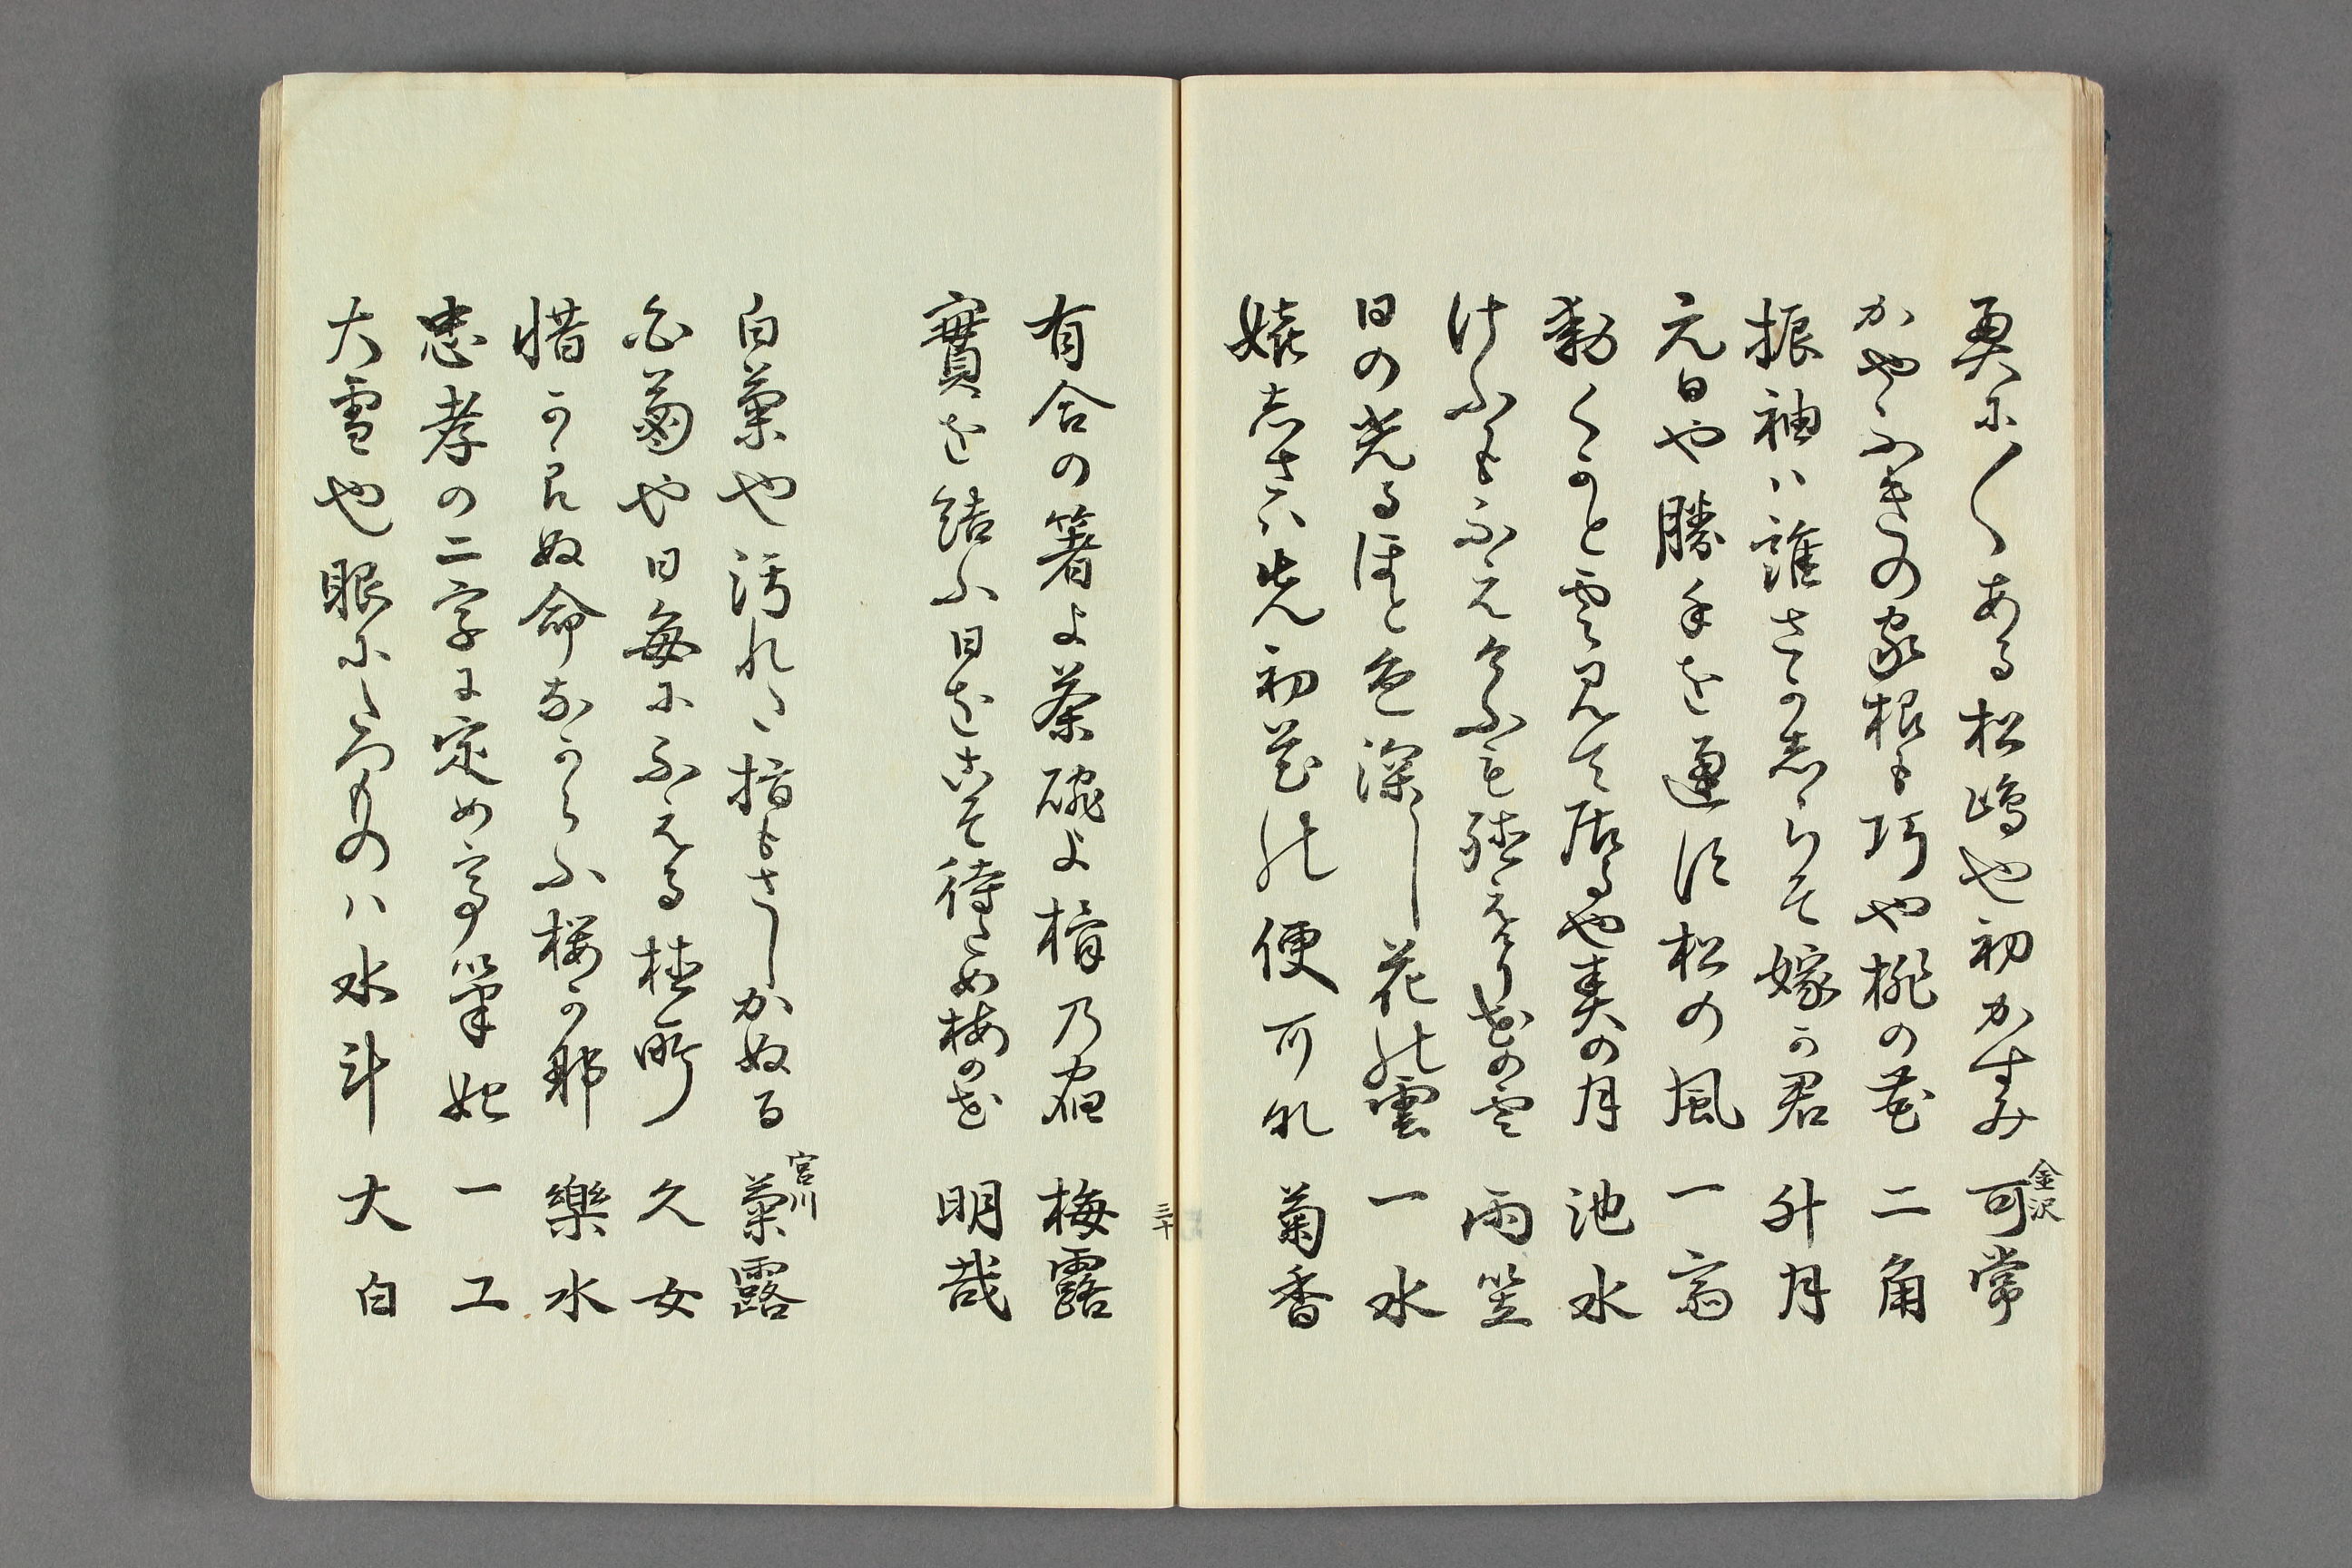 奥に〳〵ある松嶋や初かすみ 金沢 可常
かやふきの家根も巧や桃の花 二角
振袖ハ誰さかしらそ嫁か君 舛月
元日や勝手を通す松の風 一翁
動くかと雲見て居るや春の月 池水
けふもふえ今ふも殖えけり花の雲 雨笠
日の光るほと色深し花の雲 一水
嬉しさハ先初花の便可れ 菊香
三十
有合の箸よ茶碗よ榾の宿 梅露
實を結ふ日をこそ待ため梅の花 明哉
白菊や汚れし指もさしかぬる 宮川 菊露
白菊や日毎にふえる植所 久女
惜から見ぬ命なからふ桜か那 樂水
忠孝の二字に定め亭筆始 一工
大雪や眼にたつものハ水斗 大白